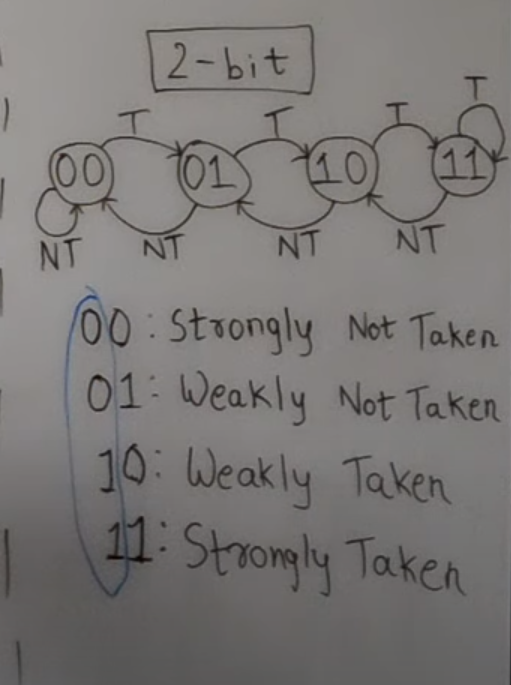 2-bit
T T T T
00 01 10 11
NT NT NT NT
00: Strongly Not Taken
01: Weakly Not Taken
10: Weakly Taken
11: Strongly Taken